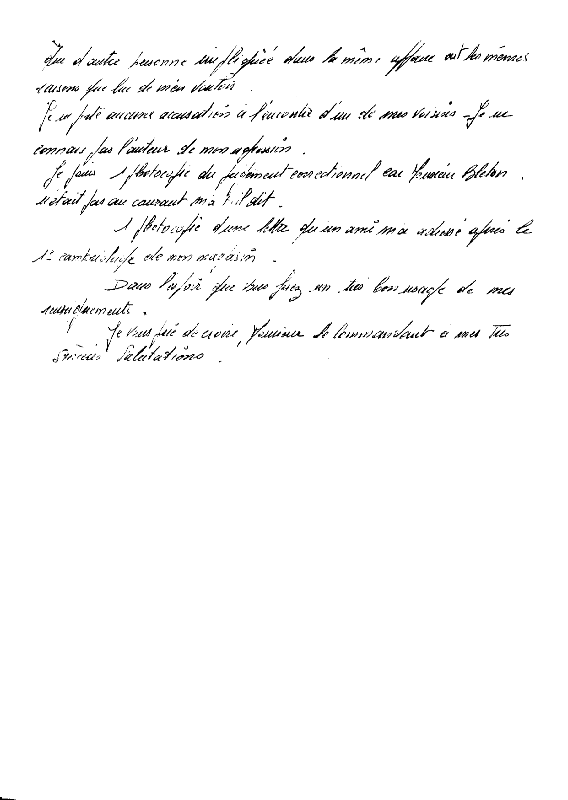 d'autre personne impliquée dans la même affaire ont les mêmes
raisons que lui de m'en vouloir.
Je ne porte aucune accusation à l'encontre d'un de mes voisins - Je ne
connais pas l'auteur de mon agression.
Je joins 1 photocopie du jugement correctionnel car Monsieur
n'était pas au courant m'a t'il dit.
1 photocopie d'une lettre qu'un ami m'a adressé après le
1er cambriolage de mon magasin.
Dans l'espoir que vous ferez un très bon usage de mes
renseignements.
Je vous prie de croire, Monsieur le Commandant à mes très
sincères Salutations.